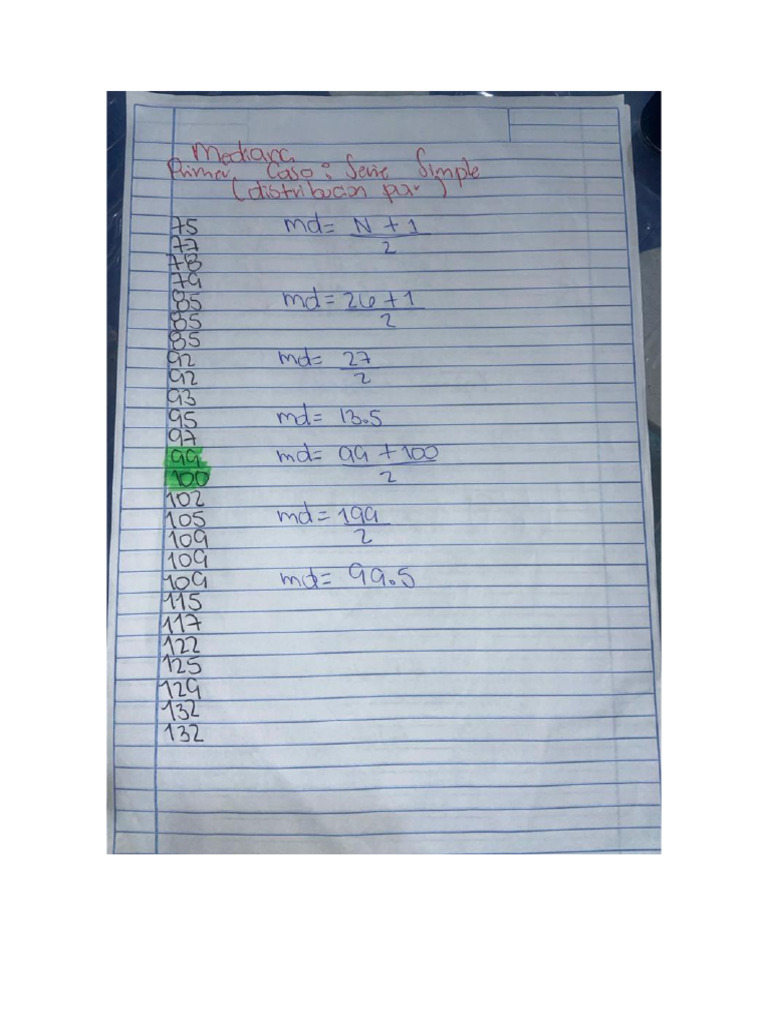 Mediana
Primer Caso: Serie Simple
(distribucion par)
75
77
78
79
85
85
85
92
92
93
95
97
99
100
102
105
109
109
109
115
117
122
125
129
132
132
md= N + 1
2
md= 26+1
2
md= 27
2
md= 13.5
md= 99 + 100
2
md= 199
2
md= 99.5